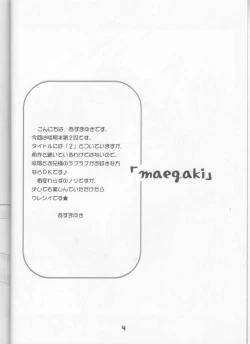 こんにちは、あずまゆきです。
今回は咲耶本第2段です。
タイトルには「2」とついていますが、
前作と続いているわけではないので、
咲耶とお兄様のラブラブがお好きな方
ならOKです♪
相変わらずのノリですが、
少しでも楽しんでいただけたら
ウレシイです★
あずまゆき
「maegaki」
4